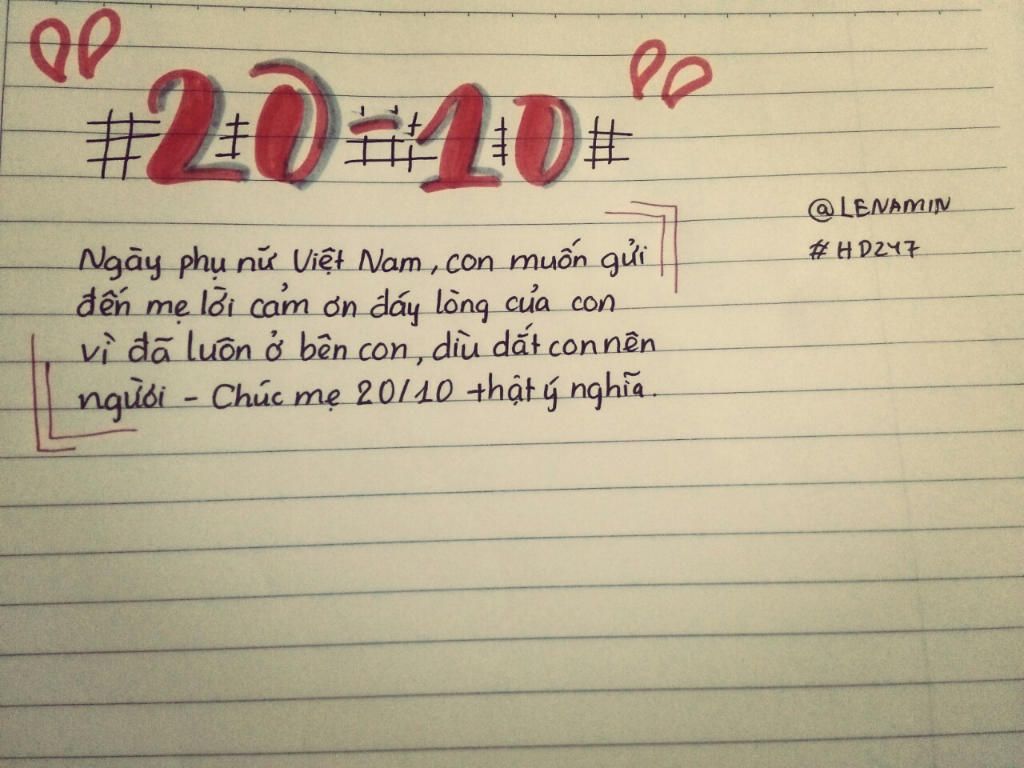 #20-10#
@LENAMIN
#HD247
Ngày phụ nữ Việt Nam, con muốn gửi
đến mẹ lời cảm ơn đáy lòng của con
vì đã luôn ở bên con, dìu dắt con nên
người - Chúc mẹ 20/10 thật ý nghĩa.